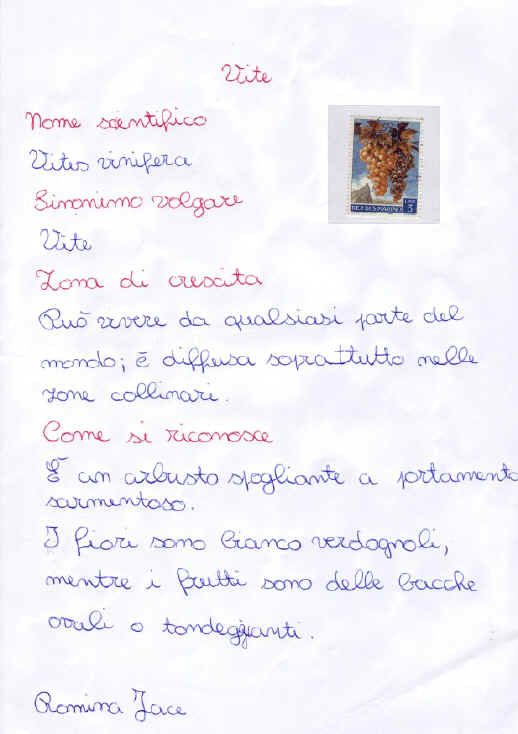 Vite
Nome scientifico
Vitis vinifera
Sinonimo volgare
Vite
Zona di crescita
Può vivere da qualsiasi parte del
mondo; è diffusa soprattutto nelle
zone collinari.
Come si riconosce
È un arbusto spogliante a portamento
sarmentoso.
I fiori sono bianco verdognoli,
mentre i frutti sono delle bacche
ovali o tondeggianti.
Romina Jace
REP. DI S. MARINO
LIRE
3